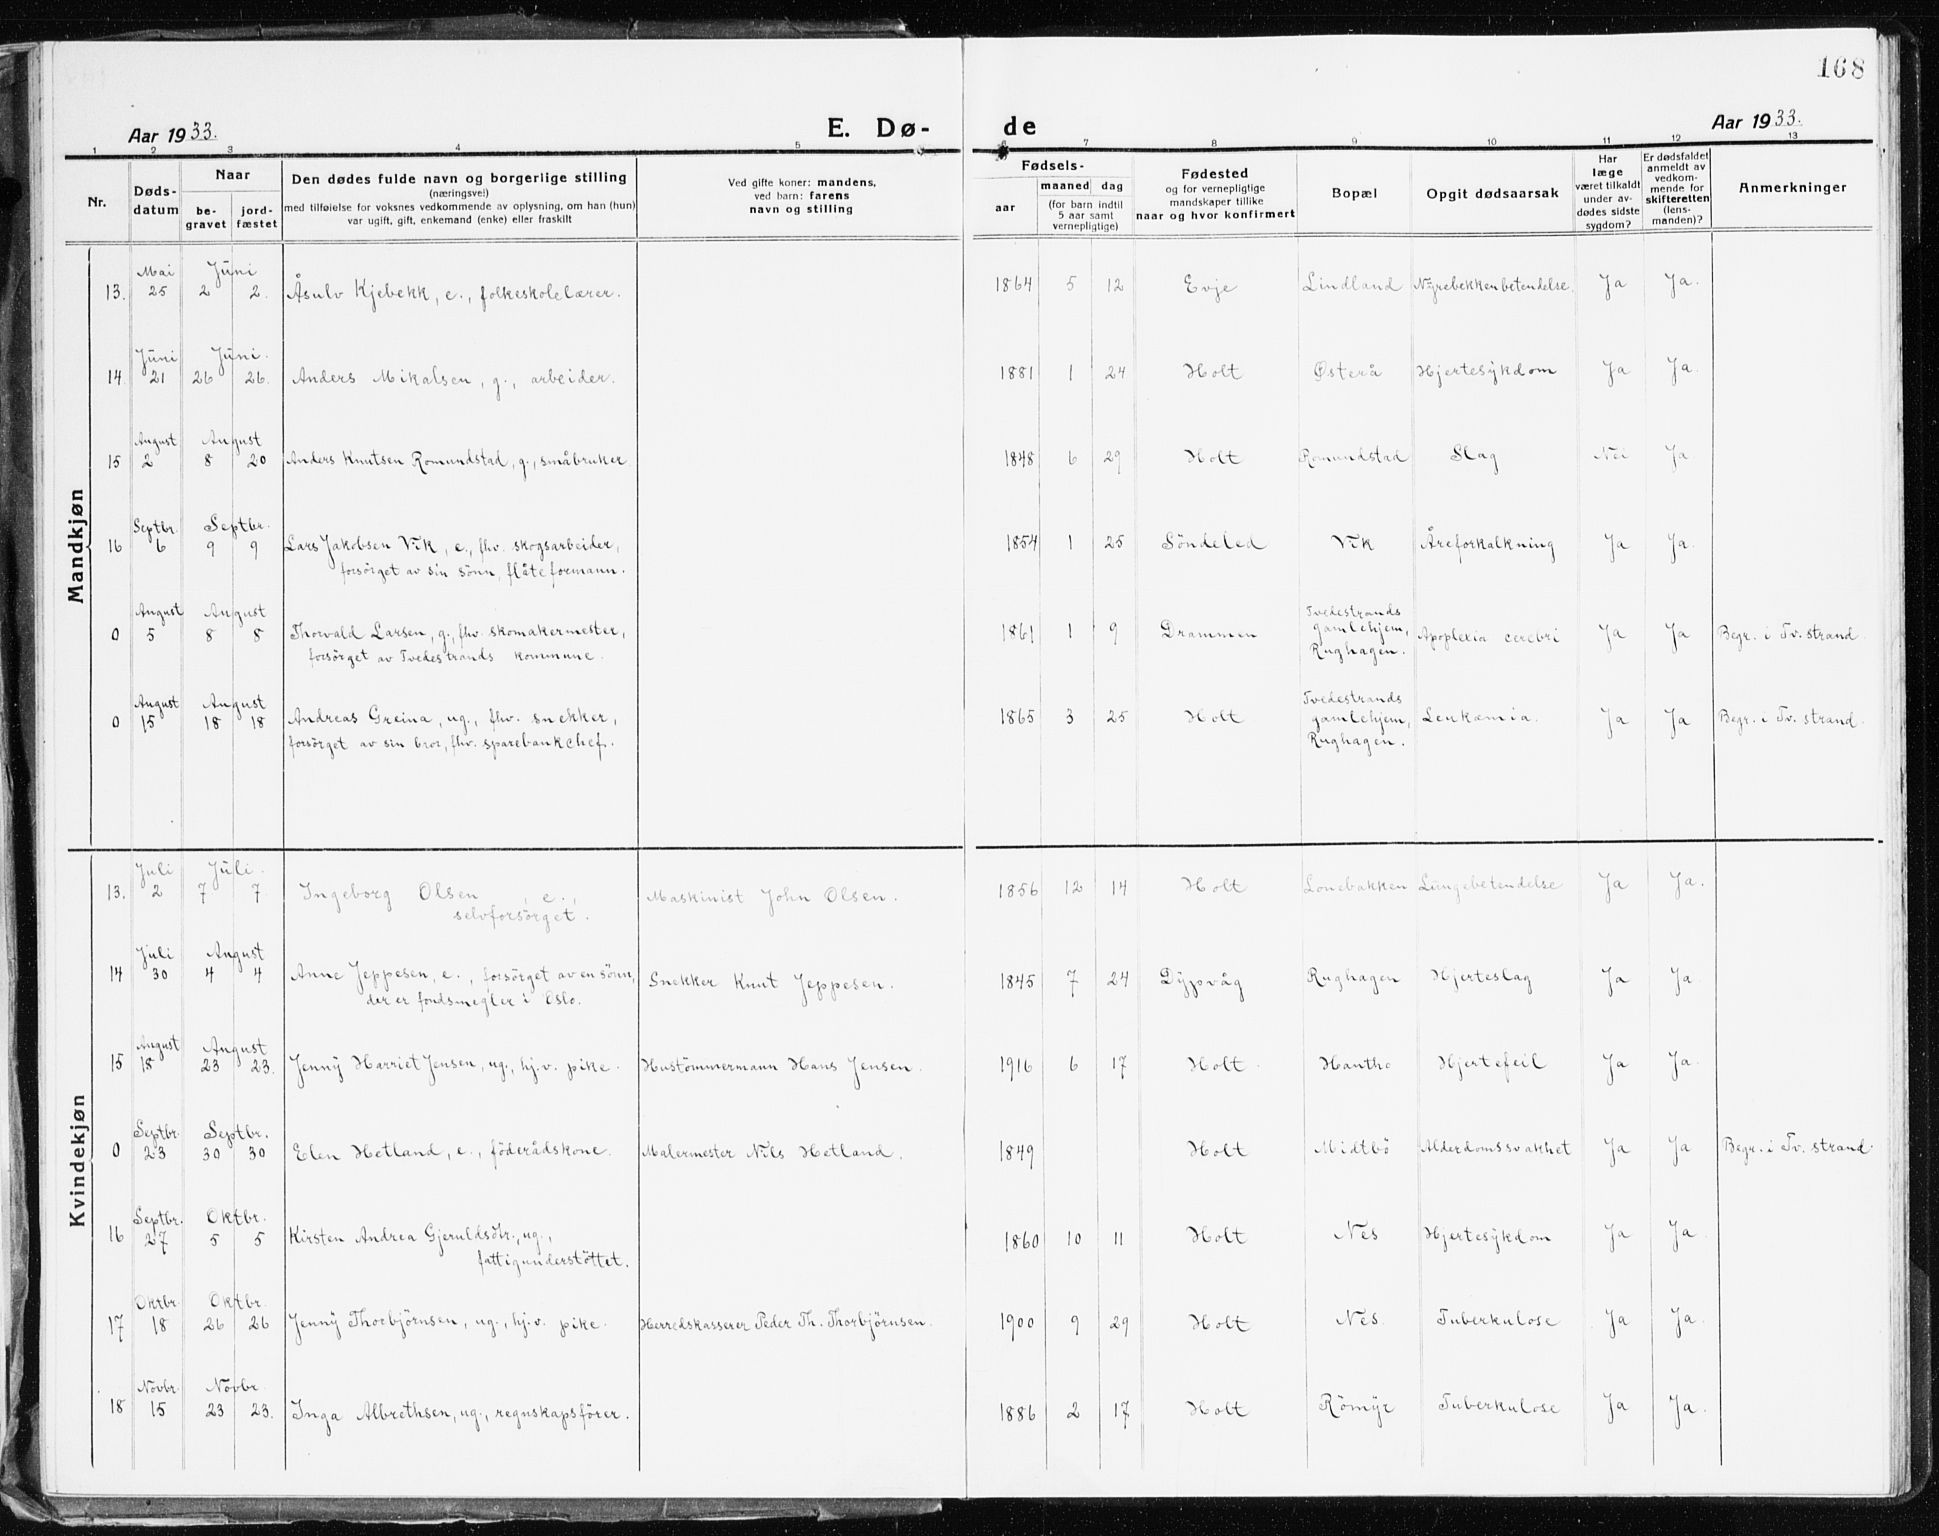 168
Aar 1933.
E. Dø-
de
Aar 1933.
1 2 3 4 5 6 7 8 9 10 11 12 13
Nr.
Døds-
datum
Naar
be-
gravet
jord-
fæstet
Den dødes fulde navn og borgerlige stilling
(næringsvei)
med tilføielse for voksnes vedkommende av oplysning, om han (hun)
var ugift, gift, enkemand (enke) eller fraskilt
Ved gifte koner: mandens,
ved barn: farens
navn og stilling
Fødsels-
aar
maaned dag
(for barn indtil
5 aar samt
vernepligtige)
Fødested
og for vernepligtige
mandskaper tillike
naar og hvor konfirmert
Bopæl
Opgit dødsaarsak
Har
læge
været tilkaldt
under av-
dødes sidste
sygdom?
Er dødsfaldet
anmeldt av
vedkom-
mende for
skifteretten
(lens-
manden)?
Anmerkninger
Mandkjøn
Mai Juni
13. 25 2 2. Åsulv Kjebekk, e., folkeskolelærer. 1864 5 12 Evje Lindland Nyrebekkenbetendelse. Ja Ja.
Juni Juni.
14. 21 26 26. Anders Mikalsen, g., arbeider. 1881 1 24 Holt Østerå Hjertesykdom Ja Ja.
August August
15 2 8 20 Anders Knutsen Romundstad, g., småbruker 1848 6 29 Holt Romundstad Slag Nei Ja.
Septbr. Septbr.
16 6 9 9 Lars Jakobsen Vik, e., fhv. skogsarbeider, 1854 1 25 Söndeled Vik Åreforkalkning Ja Ja.
forsörget av sin sönn, flåteformann.
August August
0 5 8 8 Thorvald Larsen, g., fhv. skomakermester, 1861 1 9 Drammen Tvedestrands gamlehjem, Rughagen. Apoplexia cerebri Ja Ja Begr. i Tv. strand.
forsörget av Tvedestrands kommune.
August August
0 15 18 18 Andreas Greina, ug., fhv. snekker, 1865 3 25 Holt Tvedestrands gamlehjem, Rughagen. Leukæmia. Ja Ja Begr. i Tv. strand.
forsörget av sin bror, fhv. sparebankchef.
Kvindekjøn
Juli Juli.
13. 2 7 7. Ingeborg Olsen, e., Maskinist John Olsen. 1856 12 14 Holt Lonebakken Lungebetendelse Ja Ja.
selvforsörget.
Juli August
14 30 4 4 Anne Jeppesen, e., forsörget av en sönn, Snekker Knut Jeppesen. 1845 7 24 Dypvåg Rughagen Hjerteslag Ja Ja.
der er fondsmegler i Oslo.
August August
15 18 23 23. Jenny Harriet Jensen, ug., hj.v. pike. Hustömmermann Hans Jensen. 1916 6 17 Holt. Hantho Hjertefeil Ja Ja.
Septbr. Septbr.
0 23 30 30 Elen Hetland, e., föderådskone. Malermester Nils Hetland. 1849 Holt Midtbö Alderdomssvakhet Ja Ja Begr. i Tv. strand.
Septbr. Oktbr.
16 27 5 5 Kirsten Andrea Gjeruldsdtr., ug., 1860 10 11 Holt Nes Hjertesykdom Ja Ja.
fattigunderstöttet.
Oktbr. Oktbr.
17 18 26 26 Jenny Thorbjörnsen, ug., hj.v. pike. Herredskasserer Peder Th. Thorbjörnsen. 1900 9 29 Holt Nes. Tuberkulose Ja Ja.
Novbr. Novbr.
18 15 23 23. Inga Albrethsen, ug., regnskapsförer. 1886 2 17 Holt Römyr Tuberkulose Ja Ja.